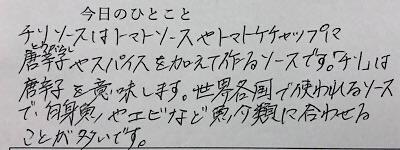 今日のひとこと
チリソースはトマトソースやトマトケチャップに
とうがらし
唐辛子やスパイスを加えて作るソースです。「チリ」は
唐辛子を意味します。世界各国で使われるソース
で、白身魚やエビなど魚介類に合わせる
ことが多いです。